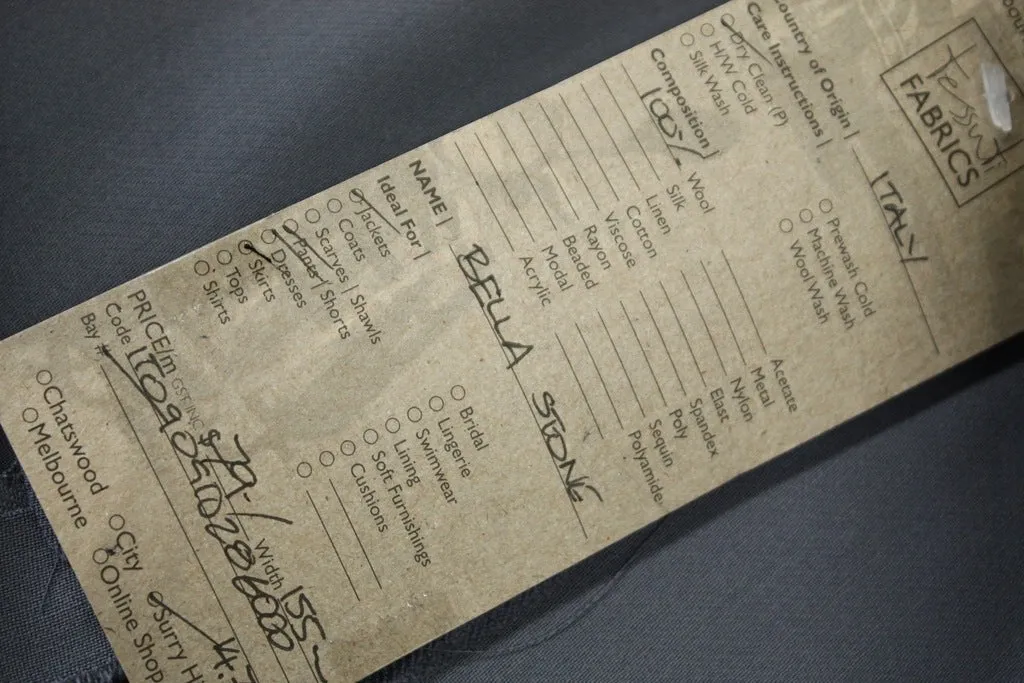 Tessuti
FABRICS
Country of Origin | ITALY
Care Instructions |
Dry Clean (P)
H/W Cold
Silk Wash
Prewash Cold
Machine Wash
Wool Wash
Composition |
100% Wool
Silk
Linen
Cotton
Viscose
Rayon
Beaded
Modal
Acrylic
Acetate
Metal
Nylon
Elast
Spandex
Poly
Sequin
Polyamide
NAME | BELLA STONE
Ideal For |
Jackets
Coats
Scarves | Shawls
Pants | Shorts
Dresses
Skirts
Tops
Shirts
Bridal
Lingerie
Swimwear
Lining
Soft Furnishings
Cushions
PRICE/m GST INC $79.- Width 155~
Code
Bay #
Chatswood
Melbourne
City
Online Shop
Surry H